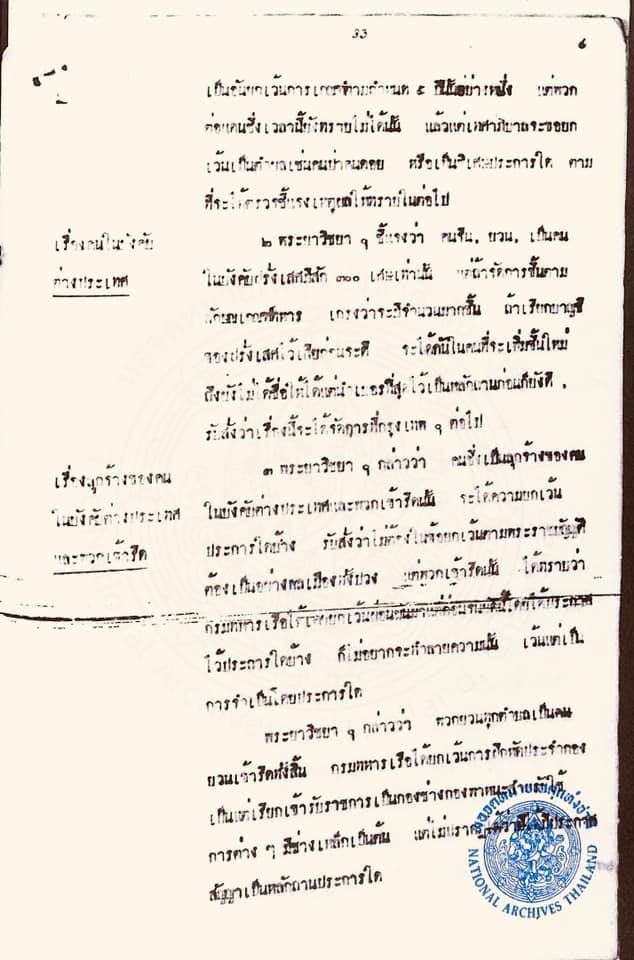 ๖
เป็นอันยกเว้นการเกณฑ์ตามกำหนด ๕ ปีนี้อย่างหนึ่ง แต่พวก
ต่อแดนซึ่งเวลานี้ยังทราบไม่ได้นั้น แล้วแต่เทศาภิบาลจะขอยก
เว้นเป็นตำบลเช่นคนป่าคนดอย หรือเป็นวิเศษประการใด ตาม
ที่จะได้ตรวจชี้แจงเหตุผลให้ทราบในต่อไป
เรื่องคนในบังคับ
ต่างประเทศ
๒ พระยาวิชยา ฯ ชี้แจงว่า คนจีน, ยวน, เป็นคน
ในบังคับฝรั่งเศสมีสัก ๓๐๐ เศษเท่านั้น แต่ถ้าจัดการขึ้นตาม
ลักษณเกณฑ์ทหาร เกรงว่าจะมีจำนวนมากขึ้น ถ้าเรียกบาญชี
ของฝรั่งเศสไว้เสียก่อนจะดี จะได้ในคนที่จะเพิ่มขึ้นใหม่
ถึงยังไม่ได้ชื่อให้ได้แต่นำเบอรที่สุดไว้เป็นหลักถานก่อนก็ยังดี ,
รับสั่งว่าเรื่องนี้จะได้จัดการที่กรุงเทพ ฯ ต่อไป
เรื่องลูกจ้างของคน
ในบังคับต่างประเทศ
และพวกเข้ารีด
๓ พระยาวิชยา ฯ กล่าวว่า คนซึ่งเป็นลูกจ้างของคน
ในบังคับต่างประเทศและพวกเข้ารีดนั้น จะได้ความยกเว้น
ประการใดบ้าง รับสั่งว่าไม่ต้องในข้อยกเว้นตามพระราชบัญญัติ
ต้องเป็นอย่างพลเมืองทั้งปวง แต่พวกเข้ารีดนั้น ได้ทราบว่า
กรมทหารเรือได้เคยยกเว้นผ่อนผันมาแต่ก่อน โดยได้ประกาศ
ไว้ประการใดบ้าง ก็ไม่อยากจะทำลายความนั้น เว้นแต่เป็น
การจำเป็นโดยประการใด
พระยาวิชยา ฯ กล่าวว่า พวกยวนทุกตำบลเป็นคน
ยวนเข้ารีดทั้งสิ้น กรมทหารเรือได้ยกเว้นการฝึกหัดประจำกอง
เป็นแต่เรียกเข้ารับราชการเป็นกองช่างกองพาหนะสำหรับใช้
การต่าง ๆ มีช่างเหล็กเป็นต้น แต่ไม่ปรากฏได้ว่ามีประกาศ
สัญญาเป็นหลักถานประการใด
หอจดหมายเหตุแห่งชาติ
NATIONAL ARCHIVES THAILAND